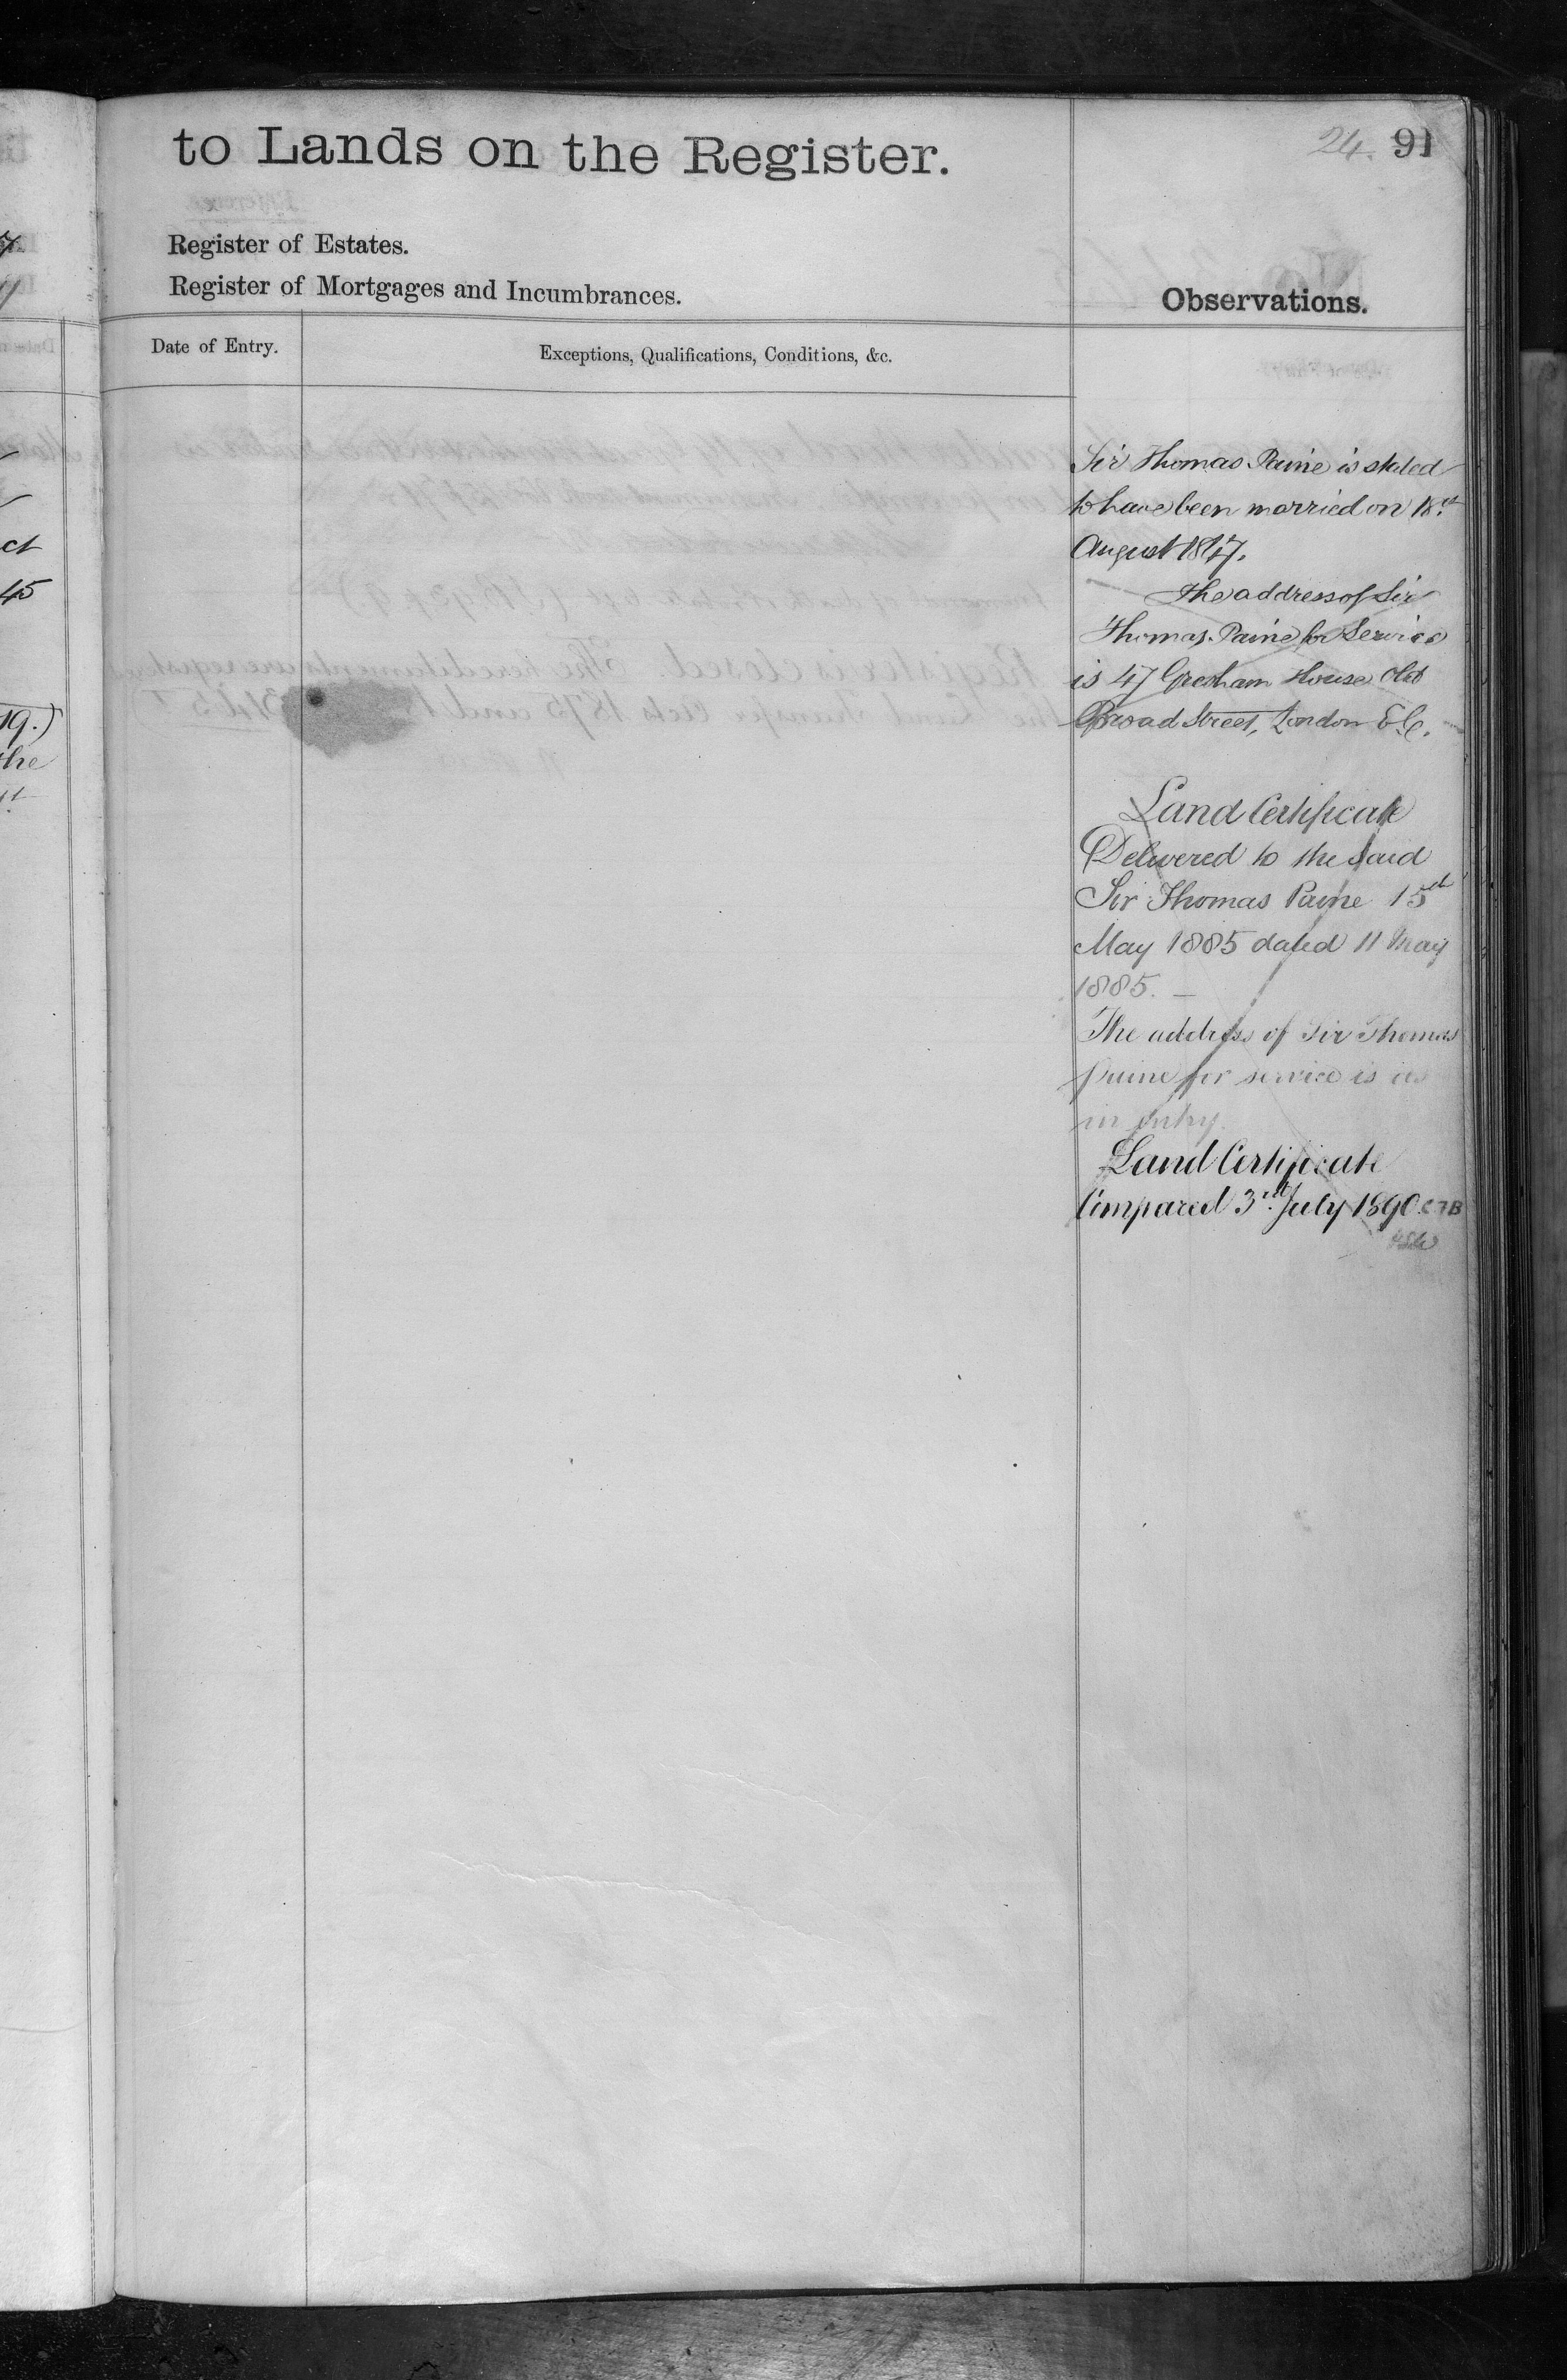 to Lands on the Register.
24. 91
Register of Estates.
Register of Mortgages and Incumbrances.
Observations.
Date of Entry.
Exceptions, Qualifications, Conditions, &c.
Sir Thomas Paine is stated
to have been married on 18th
August 1847.
The address of Sir
Thomas Paine for Service
is 47 Gresham House Old
Broad Street, London E.C.
Land Certificate
Delivered to the said
Sir Thomas Paine 15th
May 1885 dated 11 May
1885. —
The address of Sir Thomas
Paine for service is as
in entry.
Land Certificate
Compared 3rd July 1890.
ct
45
19.)
the